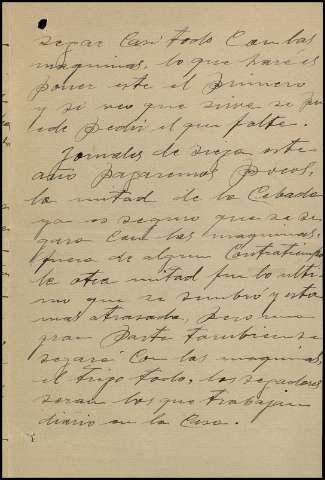 segar casi todo con las
maquinas, lo que haré es
poner este el primero
y si veo que sirve se pu
ede pedir el que falte.
Jornales de siega este
año pagaremos pocos,
la mitad de la Cebada
ya es seguro que se se
gara con las maquinas,
fuera de algun Contratiempo
la otra mitad fue lo ulti
mo que se sembro y esta
mas atrasada, pero una
gran parte tambien se
segará con las maquinas,
el trigo todo, los segadores
seran los que trabajan
diario en la Casa.